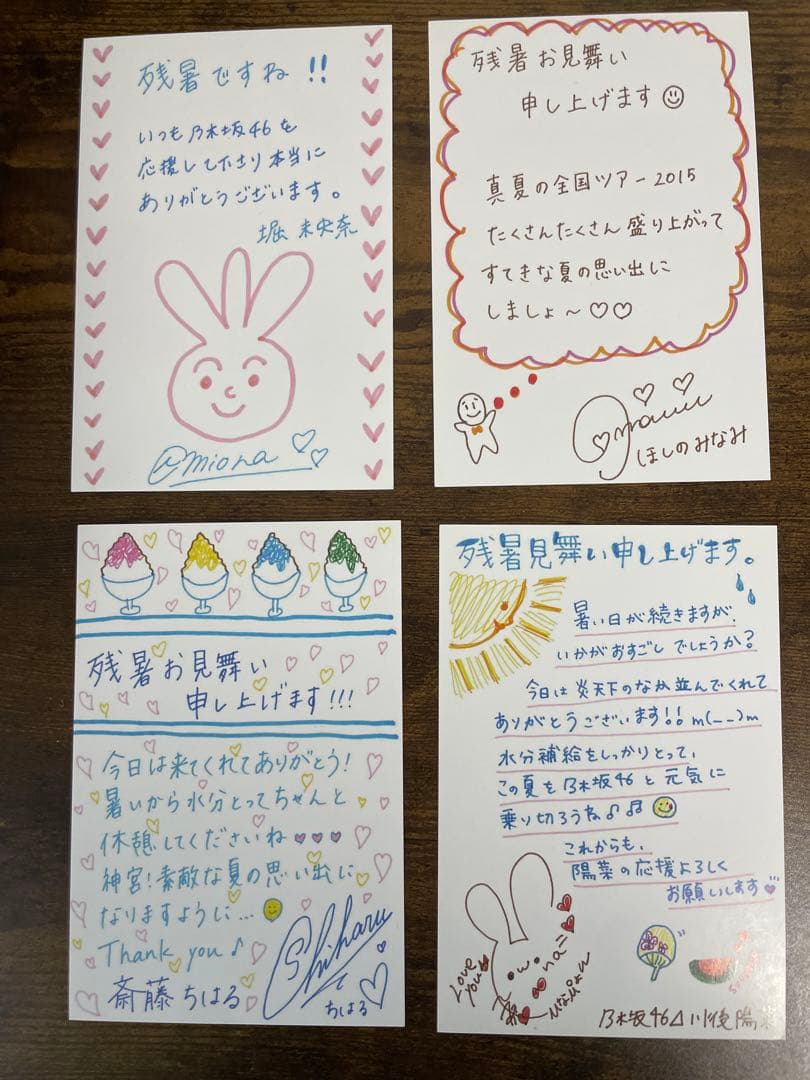 残暑ですね!!
いつも乃木坂46を
応援して下さり本当に
ありがとうございます。
堀 未央奈
@miona
残暑お見舞い
申し上げます
真夏の全国ツアー2015
たくさんたくさん盛り上がって
すてきな夏の思い出に
しましょ〜♡♡
ほしのみなみ
残暑お見舞い
申し上げます!!!
今日は来てくれてありがとう!
暑いから水分とってちゃんと
休憩してくださいね♥♥♥
神宮!素敵な夏の思い出に
なりますように…
Thank you♪
斎藤ちはる
Chiharu
ちはる
残暑見舞い申し上げます。
暑い日が続きますが、
いかがおすごしでしょうか?
今日は炎天下のなか並んでくれて
ありがとうございます!!m(__)m
水分補給をしっかりとって、
この夏を乃木坂46と元気に
乗り切ろうね♪♫
これからも、
陽菜の応援よろしく
お願いします♥
Love
you
ひなぴょん
乃木坂46 川後陽